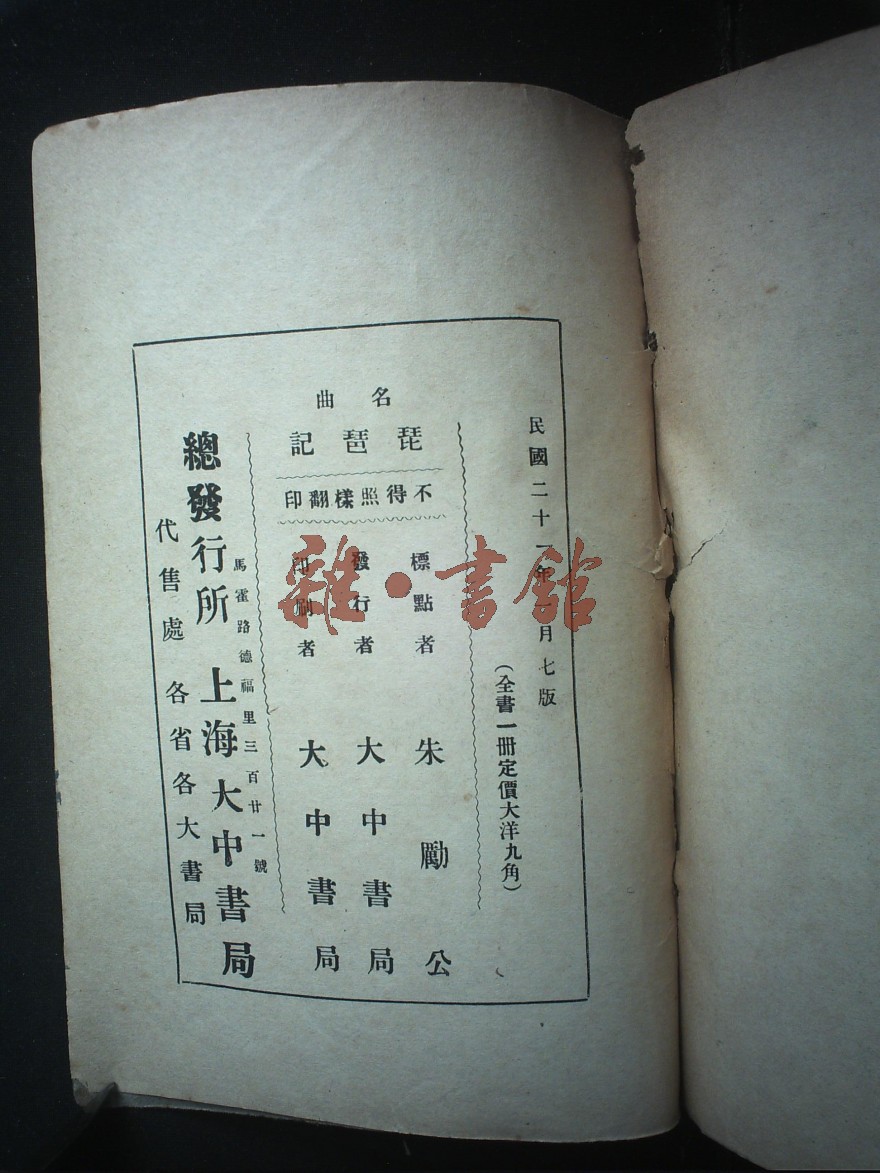 民國二十一年 月七版
(全書一冊定價大洋九角)
名曲
琵琶記
不得照樣翻印
標點者 朱勵公
發行者 大中書局
印刷者 大中書局
馬霍路德福里三百廿一號
總發行所 上海大中書局
代售處 各省各大書局
雜·書館